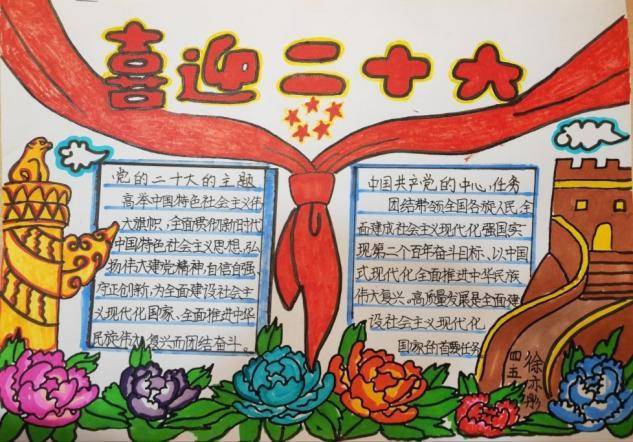 喜迎二十大
党的二十大的主题
高举中国特色社会主义伟
大旗帜,全面贯彻新时代
中国特色社会主义思想,弘
扬伟大建党精神,自信自强、
守正创新,为全面建设社会主
义现代化国家、全面推进中华
民族伟大复兴而团结奋斗。
中国共产党的中心任务
团结带领全国各族人民,全
面建成社会主义现代化强国实
现第二个五年奋斗目标、以中国
式现代化全面推进中华民族
伟大复兴,高质量发展是全面建
设社会主义现代化
国家的首要任务
四五
徐亦彤